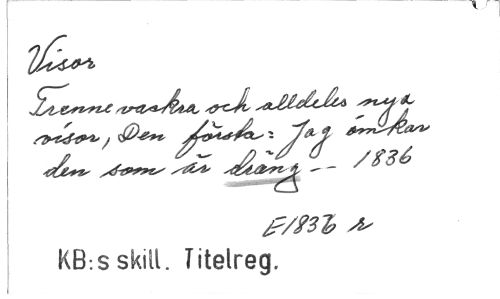 Visor
Trenne vackra och alldeles nya
visor, Den första: Jag ömkar
den som är dräng -- 1836
E1836 r
KB:s skill. Titelreg.